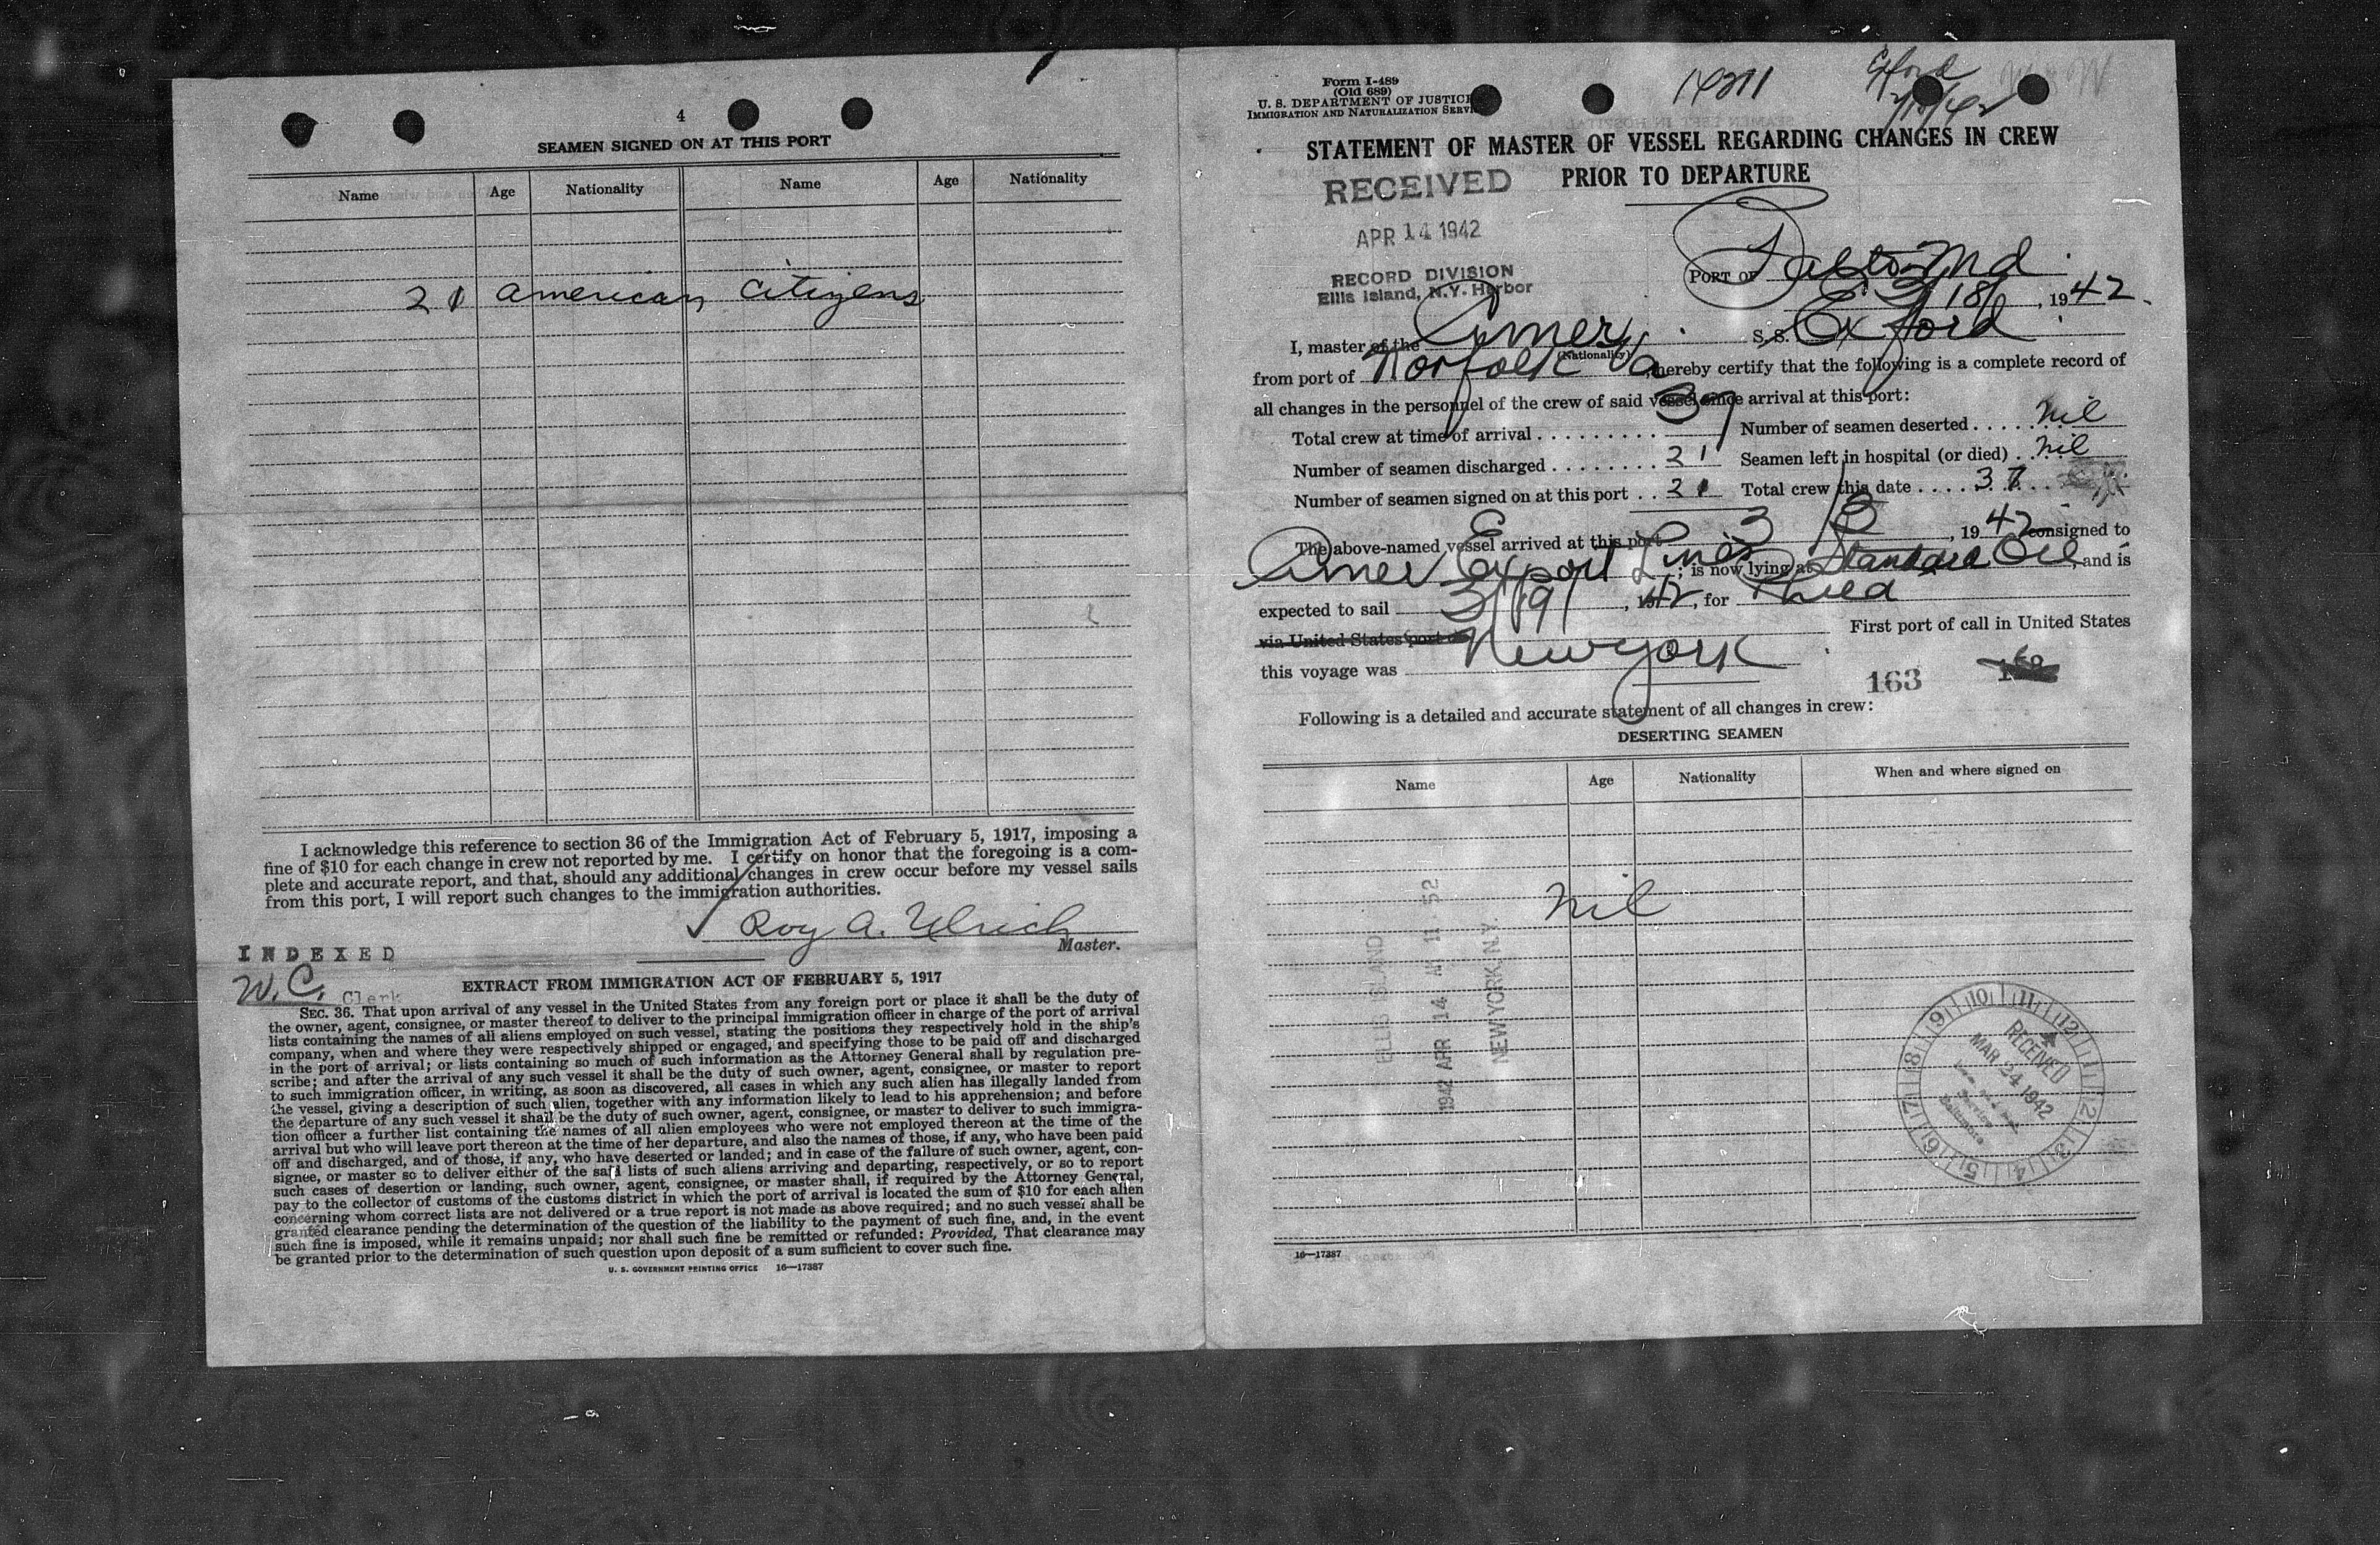 4
SEAMEN SIGNED ON AT THIS PORT
Name Age Nationality Name Age Nationality
21 American Citizens
I acknowledge this reference to section 36 of the Immigration Act of February 5, 1917, imposing a
fine of $10 for each change in crew not reported by me. I certify on honor that the foregoing is a com-
plete and accurate report, and that, should any additional changes in crew occur before my vessel sails
from this port, I will report such changes to the immigration authorities.
Roy A. Ulrich
Master.
INDEXED
W.C. Clerk
EXTRACT FROM IMMIGRATION ACT OF FEBRUARY 5, 1917
SEC. 36. That upon arrival of any vessel in the United States from any foreign port or place it shall be the duty of
the owner, agent, consignee, or master thereof to deliver to the principal immigration officer in charge of the port of arrival
lists containing the names of all aliens employed on such vessel, stating the positions they respectively hold in the ship's
company, when and where they were respectively shipped or engaged, and specifying those to be paid off and discharged
in the port of arrival; or lists containing so much of such information as the Attorney General shall by regulation pre-
scribe; and after the arrival of any such vessel it shall be the duty of such owner, agent, consignee, or master to report
to such immigration officer, in writing, as soon as discovered, all cases in which any such alien has illegally landed from
the vessel, giving a description of such alien, together with any information likely to lead to his apprehension; and before
the departure of any such vessel it shall be the duty of such owner, agent, consignee, or master to deliver to such immigra-
tion officer a further list containing the names of all alien employees who were not employed thereon at the time of the
arrival but who will leave port thereon at the time of her departure, and also the names of those, if any, who have been paid
off and discharged, and of those, if any, who have deserted or landed; and in case of the failure of such owner, agent, con-
signee, or master so to deliver either of the said lists of such aliens arriving and departing, respectively, or so to report
such cases of desertion or landing, such owner, agent, consignee, or master shall, if required by the Attorney General,
pay to the collector of customs of the customs district in which the port of arrival is located the sum of $10 for each alien
concerning whom correct lists are not delivered or a true report is not made as above required; and no such vessel shall be
granted clearance pending the determination of the question of the liability to the payment of such fine, and, in the event
such fine is imposed, while it remains unpaid; nor shall such fine be remitted or refunded: Provided, That clearance may
be granted prior to the determination of such question upon deposit of a sum sufficient to cover such fine.
U. S. GOVERNMENT PRINTING OFFICE 16—17387
Form I-489
(Old 689)
U. S. DEPARTMENT OF JUSTICE
IMMIGRATION AND NATURALIZATION SERVICE
14211
STATEMENT OF MASTER OF VESSEL REGARDING CHANGES IN CREW
PRIOR TO DEPARTURE
RECEIVED
APR 14 1942
RECORD DIVISION
Ellis Island, N.Y. Harbor
PORT OF Balto Md
3/18/, 1942.
I, master of the Amer S.S. Exford
(Nationality)
from port of Norfolk Va, hereby certify that the following is a complete record of
all changes in the personnel of the crew of said vessel since arrival at this port:
Total crew at time of arrival 37 Number of seamen deserted nil
Number of seamen discharged 21 Seamen left in hospital (or died) nil
Number of seamen signed on at this port 21 Total crew this date 37
The above-named vessel arrived at this port 3/13, 1942 consigned to
Amer Export Lines; is now lying at Standard Oil, and is
expected to sail 3/19/, 1942, for Phila
via United States port First port of call in United States
this voyage was New York
163
Following is a detailed and accurate statement of all changes in crew:
DESERTING SEAMEN
Name Age Nationality When and where signed on
nil
ELLIS ISLAND
1942 APR 14 AM 11 52
NEW YORK, N.Y.
RECEIVED
MAR 24 1942
9 10 11 12 1 2 3 4 5 6 7 8
16—17387